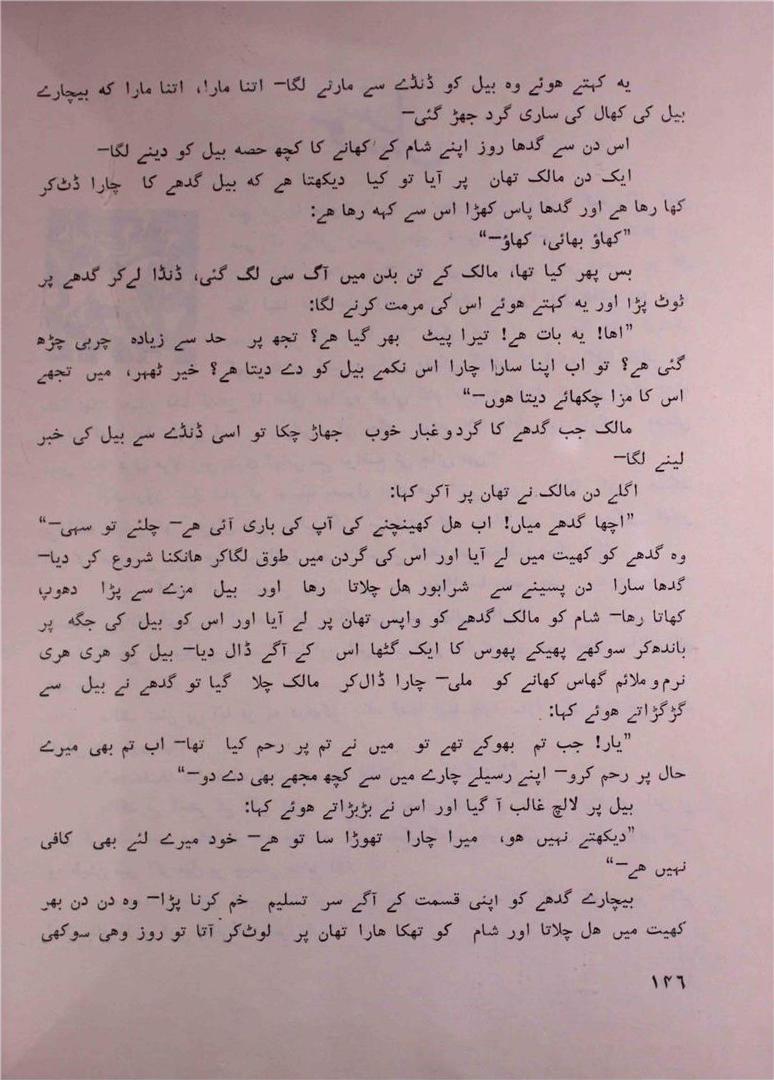 یه کہتے ھوئے وہ بیل کو ڈنڈے سے مارنے لگا— اتنا مارا، اتنا مارا که بیچارے
بیل کی کھال کی ساری گرد جھڑ گئی—
اس دن سے گدھا روز اپنے شام کے کھانے کا کچھ حصه بیل کو دینے لگا—
ایک دن مالک تھان پر آیا تو کیا دیکھتا ھے که بیل گدھے کا چارا ڈٹ‌کر
کھا رھا ھے اور گدھا پاس کھڑا اس سے کہه رھا ھے:
”کھاؤ بھائی، کھاؤ—“
بس پھر کیا تھا، مالک کے تن بدن میں آگ سی لگ گئی، ڈنڈا لے‌کر گدھے پر
ٹوٹ پڑا اور یه کہتے ھوئے اس کی مرمت کرنے لگا:
”اھا! یه بات ھے! تیرا پیٹ بھر گیا ھے؟ تجھ پر حد سے زیادہ چربی چڑھ
گئی ھے؟ تو اب اپنا سارا چارا اس نکمے بیل کو دے دیتا ھے؟ خیر ٹھہر، میں تجھے
اس کا مزا چکھائے دیتا ھوں—“
مالک جب گدھے کا گرد و غبار خوب جھاڑ چکا تو اسی ڈنڈے سے بیل کی خبر
لینے لگا—
اگلے دن مالک نے تھان پر آکر کہا:
”اچھا گدھے میاں! اب ھل کھینچنے کی آپ کی باری آئی ھے— چلئے تو سہی—“
وہ گدھے کو کھیت میں لے آیا اور اس کی گردن میں طوق لگاکر ھانکنا شروع کر دیا—
گدھا سارا دن پسینے سے شرابور ھل چلاتا رھا اور بیل مزے سے پڑا دھوپ
کھاتا رھا— شام کو مالک گدھے کو واپس تھان پر لے آیا اور اس کو بیل کی جگه پر
باندھ‌کر سوکھے پھیکے پھوس کا ایک گٹھا اس کے آگے ڈال دیا— بیل کو ھری ھری
نرم و ملائم گھاس کھانے کو ملی— چارا ڈال‌کر مالک چلا گیا تو گدھے نے بیل سے
گڑگڑاتے ھوئے کہا:
”یار! جب تم بھوکے تھے تو میں نے تم پر رحم کیا تھا— اب تم بھی میرے
حال پر رحم کرو— اپنے رسیلے چارے میں سے کچھ مجھے بھی دے دو—“
بیل پر لالچ غالب آ گیا اور اس نے بڑبڑاتے ھوئے کہا:
”دیکھتے نہیں ھو، میرا چارا تھوڑا سا تو ھے— خود میرے لئے بھی کافی
نہیں ھے—“
بیچارے گدھے کو اپنی قسمت کے آگے سر تسلیم خم کرنا پڑا— وہ دن دن بھر
کھیت میں ھل چلاتا اور شام کو تھکا ھارا تھان پر لوٹ‌کر آتا تو روز وھی سوکھی
۱۴۶